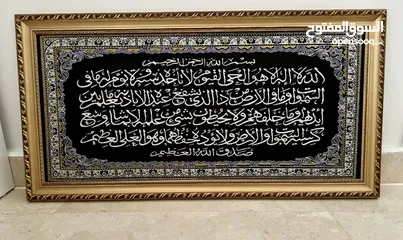 السوق المفتوح
opensooq.com
بسم الله الرحمن الرحيم
الله لا إله إلا هو الحي القيوم لا تأخذه سنة ولا نوم له ما في
السموات وما في الأرض من ذا الذي يشفع عنده إلا بإذنه يعلم ما بين
أيديهم وما خلفهم ولا يحيطون بشيء من علمه إلا بما شاء وسع
كرسيه السموات والأرض ولا يؤده حفظهما وهو العلي العظيم
صدق الله العظيم